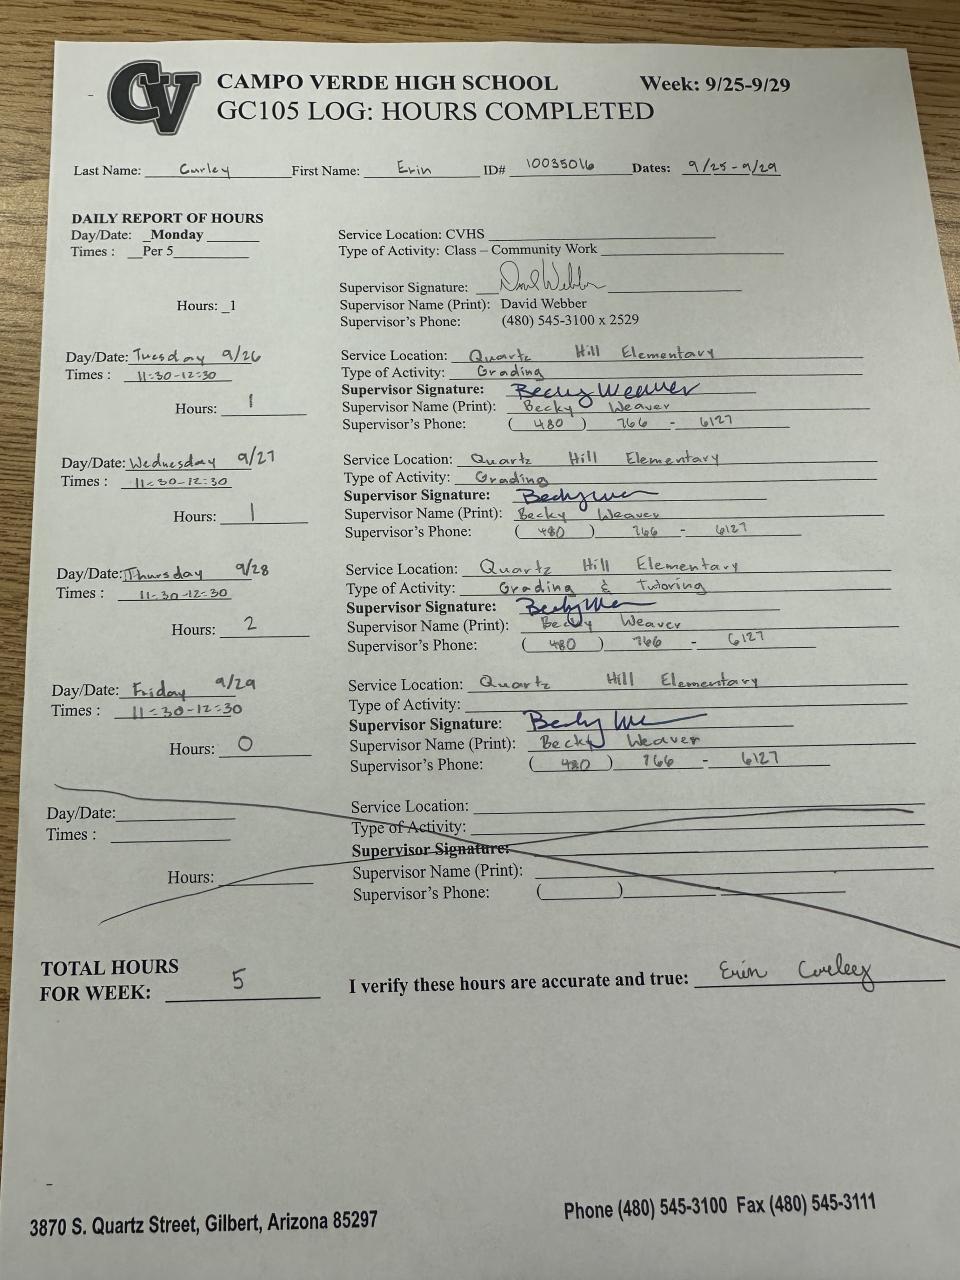 CV
CAMPO VERDE HIGH SCHOOL Week: 9/25-9/29
GC105 LOG: HOURS COMPLETED
Last Name: Curley First Name: Erin ID# 10035016 Dates: 9/25-9/29
DAILY REPORT OF HOURS
Day/Date: _Monday Service Location: CVHS
Times : Per 5 Type of Activity: Class – Community Work
Supervisor Signature: David Webber
Hours: _1 Supervisor Name (Print): David Webber
Supervisor's Phone: (480) 545-3100 x 2529
Day/Date: Tuesday 9/26 Service Location: Quartz Hill Elementary
Times : 11:30-12:30 Type of Activity: Grading
Supervisor Signature: Becky Weaver
Hours: 1 Supervisor Name (Print): Becky Weaver
Supervisor's Phone: (480) 766 - 6127
Day/Date: Wednesday 9/27 Service Location: Quartz Hill Elementary
Times : 11:30-12:30 Type of Activity: Grading
Supervisor Signature: Becky
Hours: 1 Supervisor Name (Print): Becky Weaver
Supervisor's Phone: (480) 766 - 6127
Day/Date: Thursday 9/28 Service Location: Quartz Hill Elementary
Times : 11:30-12:30 Type of Activity: Grading & Tutoring
Supervisor Signature: Becky
Hours: 2 Supervisor Name (Print): Becky Weaver
Supervisor's Phone: (480) 766 - 6127
Day/Date: Friday 9/29 Service Location: Quartz Hill Elementary
Times : 11:30-12:30 Type of Activity:
Supervisor Signature: Becky
Hours: 0 Supervisor Name (Print): Becky Weaver
Supervisor's Phone: (480) 766 - 6127
Day/Date: Service Location:
Times : Type of Activity:
Supervisor Signature:
Hours: Supervisor Name (Print):
Supervisor's Phone: ( )
TOTAL HOURS
FOR WEEK: 5 I verify these hours are accurate and true: Erin Curley
3870 S. Quartz Street, Gilbert, Arizona 85297 Phone (480) 545-3100 Fax (480) 545-3111